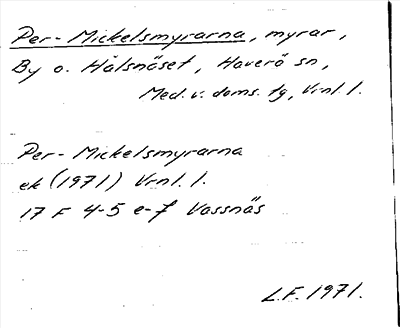 Per-Mickelsmyrarna, myrar,
By o. Hålsnäset, Haverö sn,
Med. v. doms. tg, Vrnl. l.
Per-Mickelsmyrarna
ek (1971) Vrnl. l.
17 F 4-5 e-f Vassnäs
L.F. 1971.